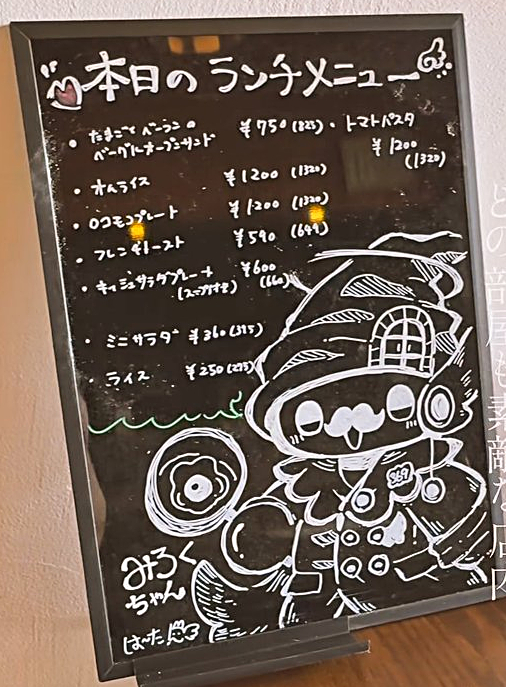 本日のランチメニュー
・たまごとベーコンの
ベーグルオープンサンド ¥750(825)
・トマトパスタ
¥1200
(1320)
・オムライス ¥1200 (1320)
・ロコモコプレート ¥1200 (1320)
・フレンチトースト ¥590 (649)
・キッシュサラダプレート ¥600
(スープ付き) (660)
・ミニサラダ ¥360
・ライス ¥250(275)
369
みろく
ちゃん
どの部屋も素敵な店内